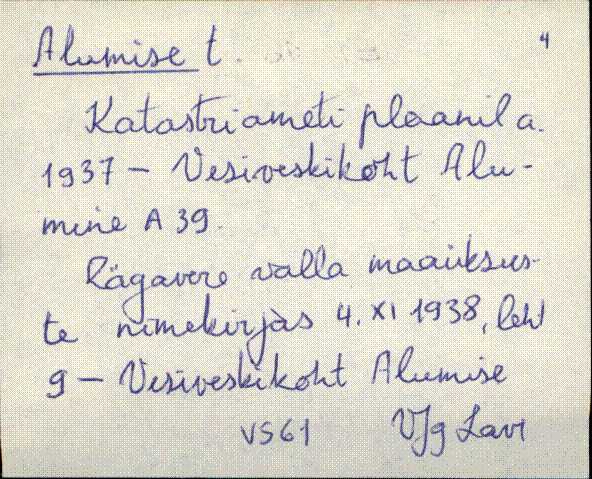 4
Alumise t.
Katastriameti plaanil a.
1937 - Vesiveskikoht Alu-
mine A 39.
Rägavere valla maaüksus-
te nimekirjas 4. XI 1938, leht
9 - Vesiveskikoht Alumise
VS61 VJg Lavi